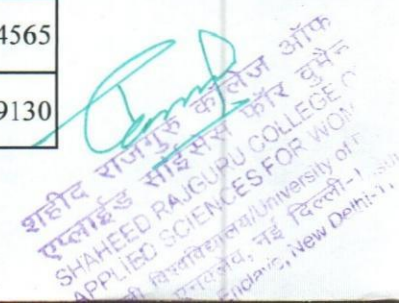 4565
9130
शहीद राजगुरु कॉलेज ऑफ
एप्लाईड साईंसेस फॉर वुमैन
SHAHEED RAJGURU COLLEGE O
APPLIED SCIENCES FOR WOM
विश्वविद्यालय/University of
नई दिल्ली-1
Enclave, New Delhi-1